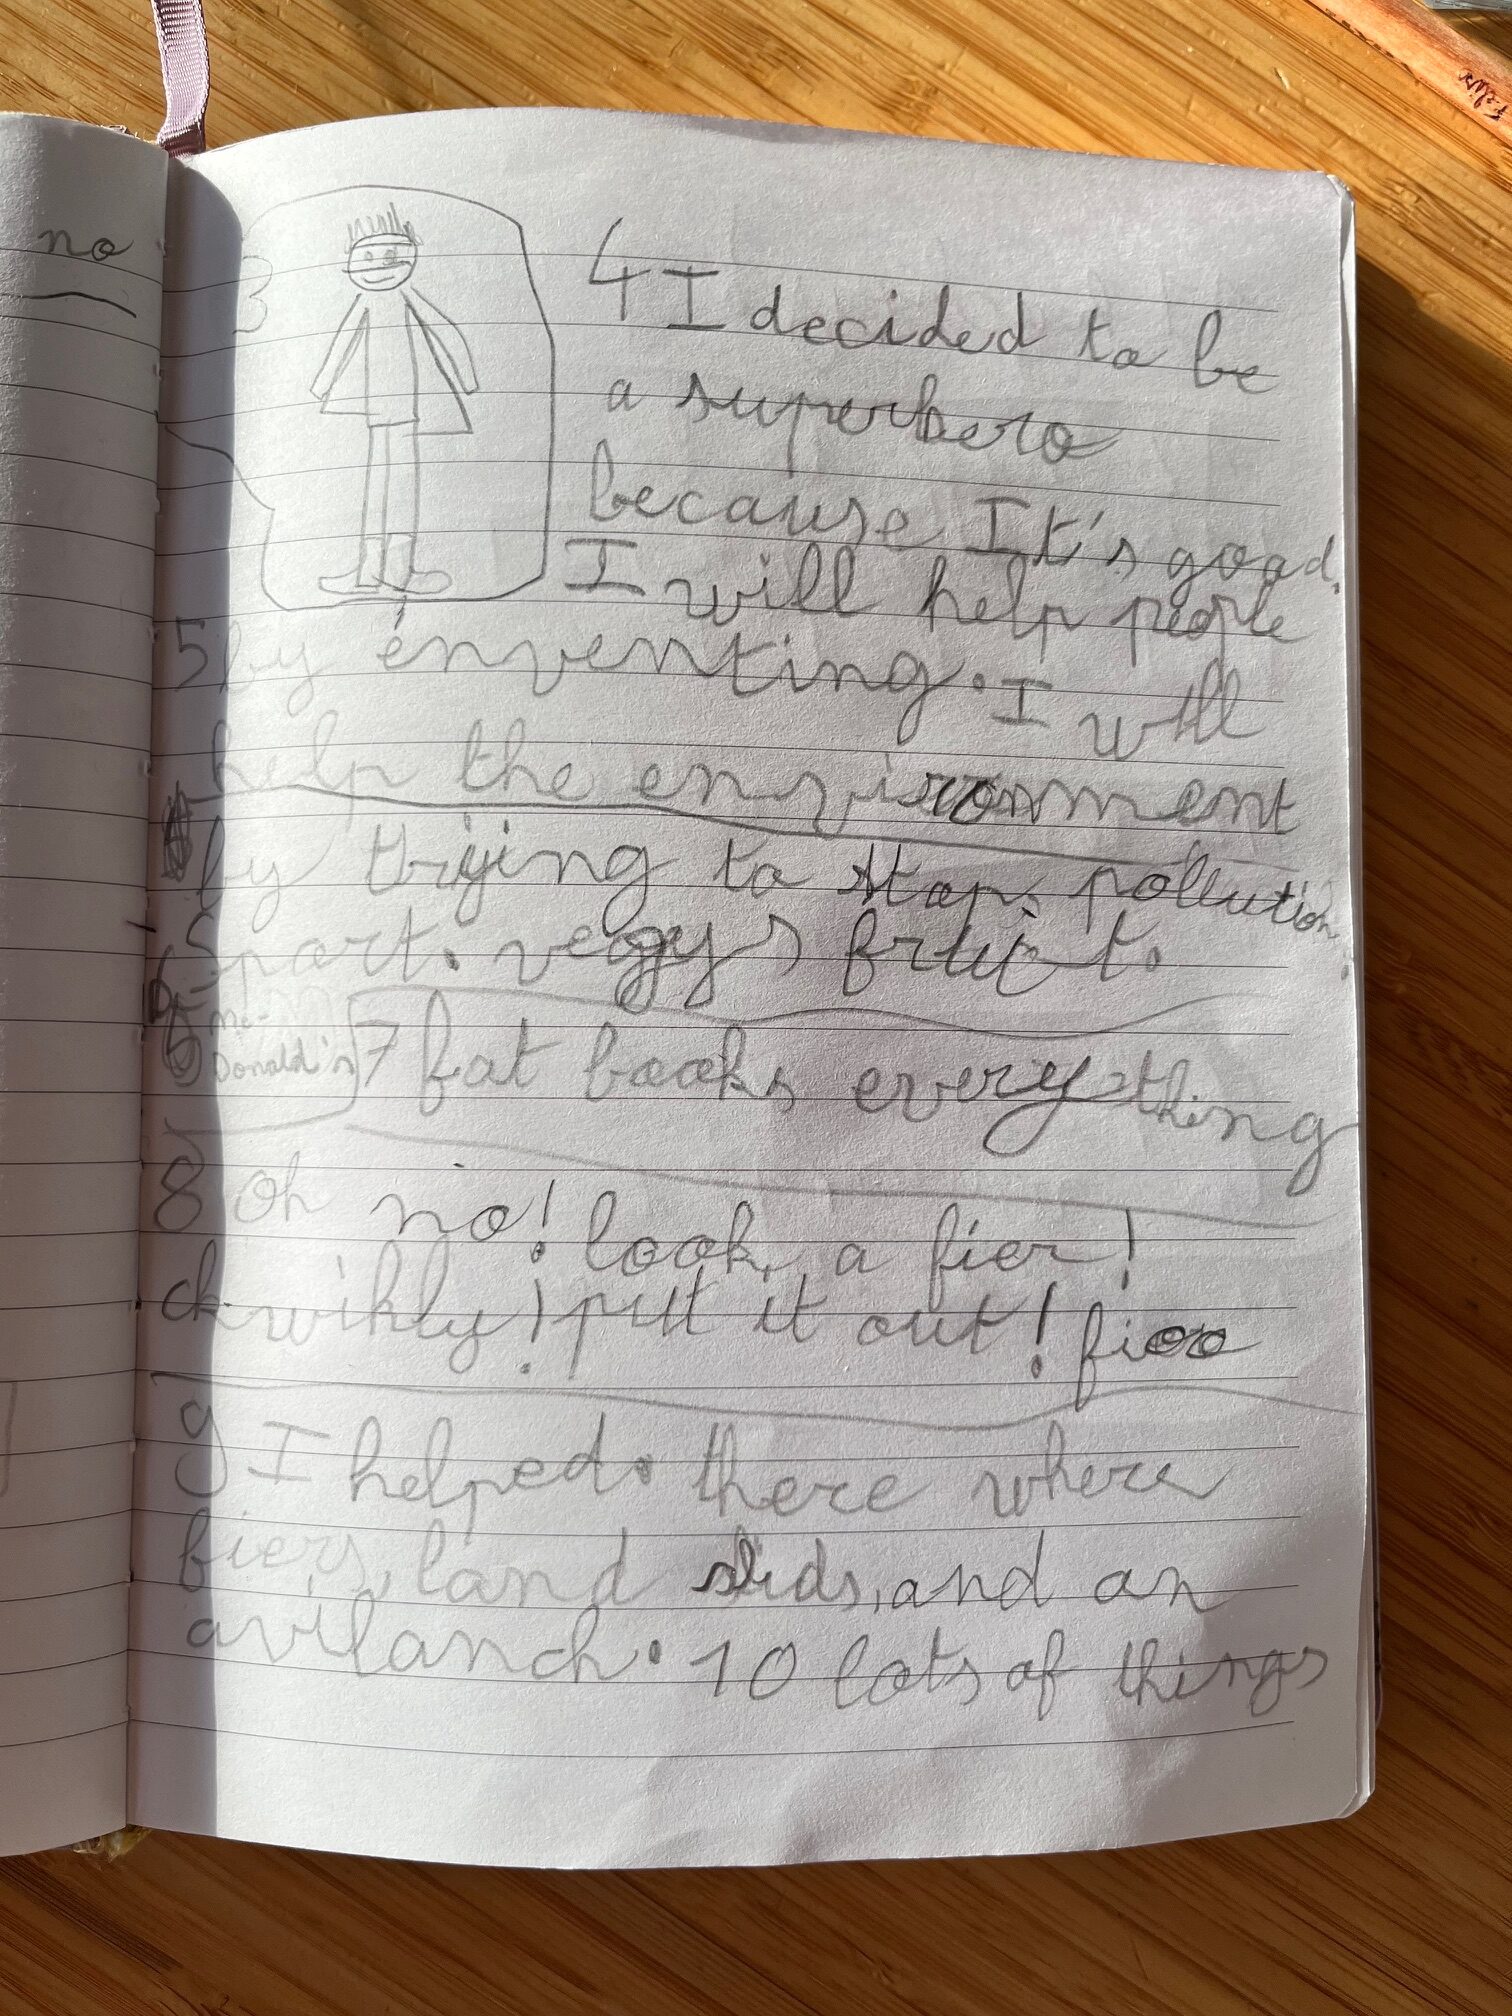 no
3
4 I decided to be
a superhero
because It's good.
I will help people
5 by énventing. I will
help the environment
by trying to stop pollution.
6 Sport. vegys fruit.
Mc-
Donald's
7 fat books everything
8 oh no! look, a fier!
ckwikly! put it out!
9 I helped. there where
fiers, land slids, and an
avilanch. 10 lots of things
Felix